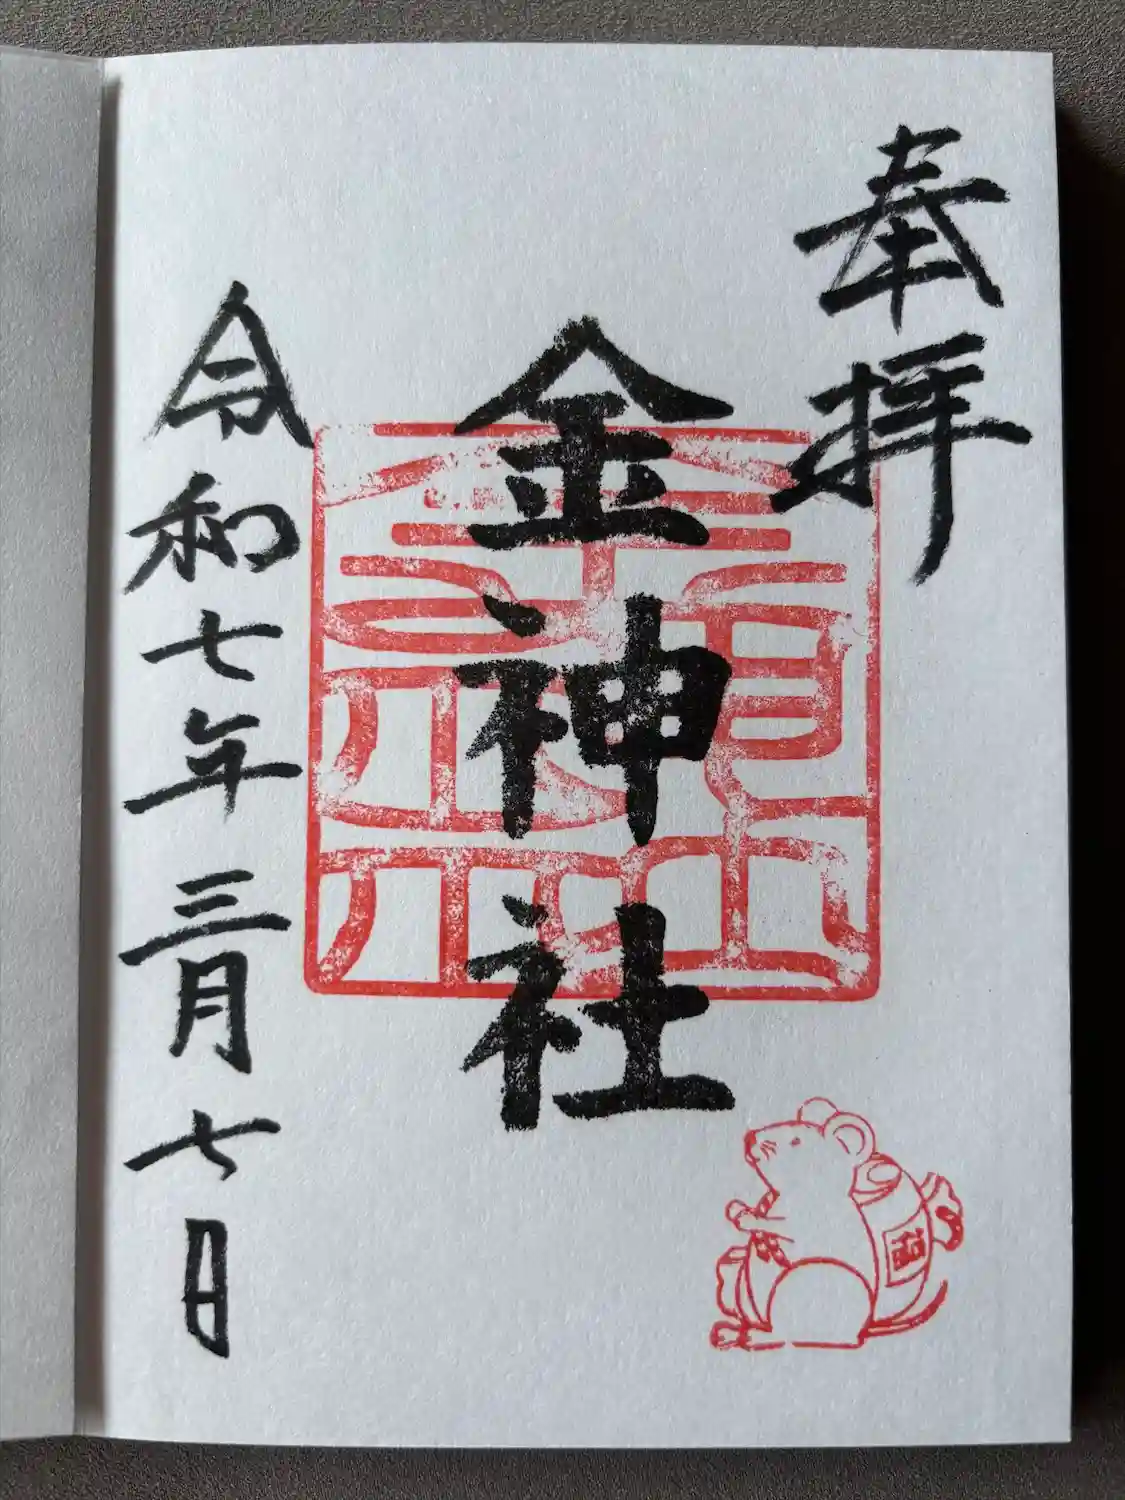 奉拝
金神社
令和七年三月七日
福